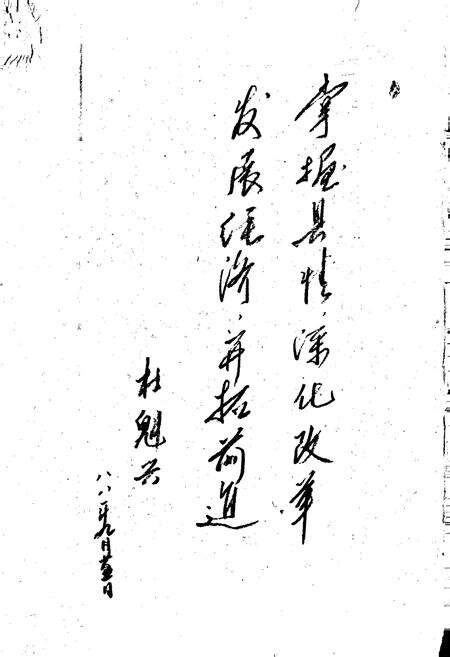 掌握县情深化改革
发展经济开拓前进
杜魁兴
八八年九月